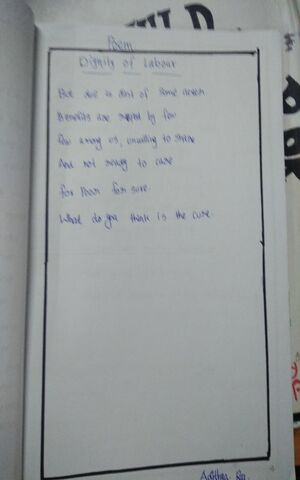 Poem
Dignity of Labour
But due is dent of some
Benefits are by few
few among us, unwilling to share
And not ready to care
for Poor for sure.
What do you think is the cure.